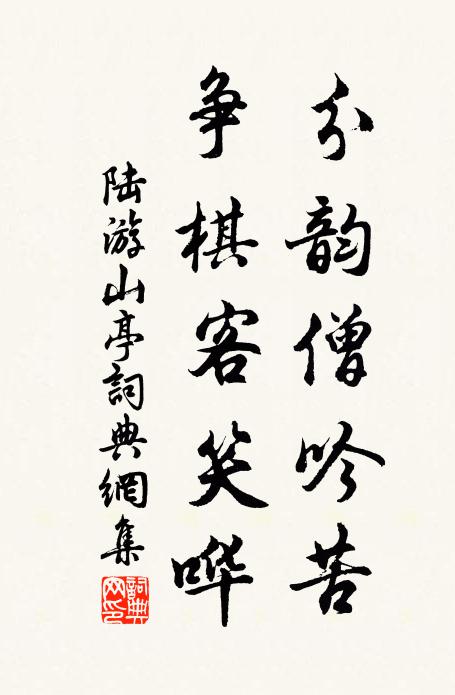 分韵僧吟苦
争棋客笑哗
陆游山亭詞典網集
詞典网印